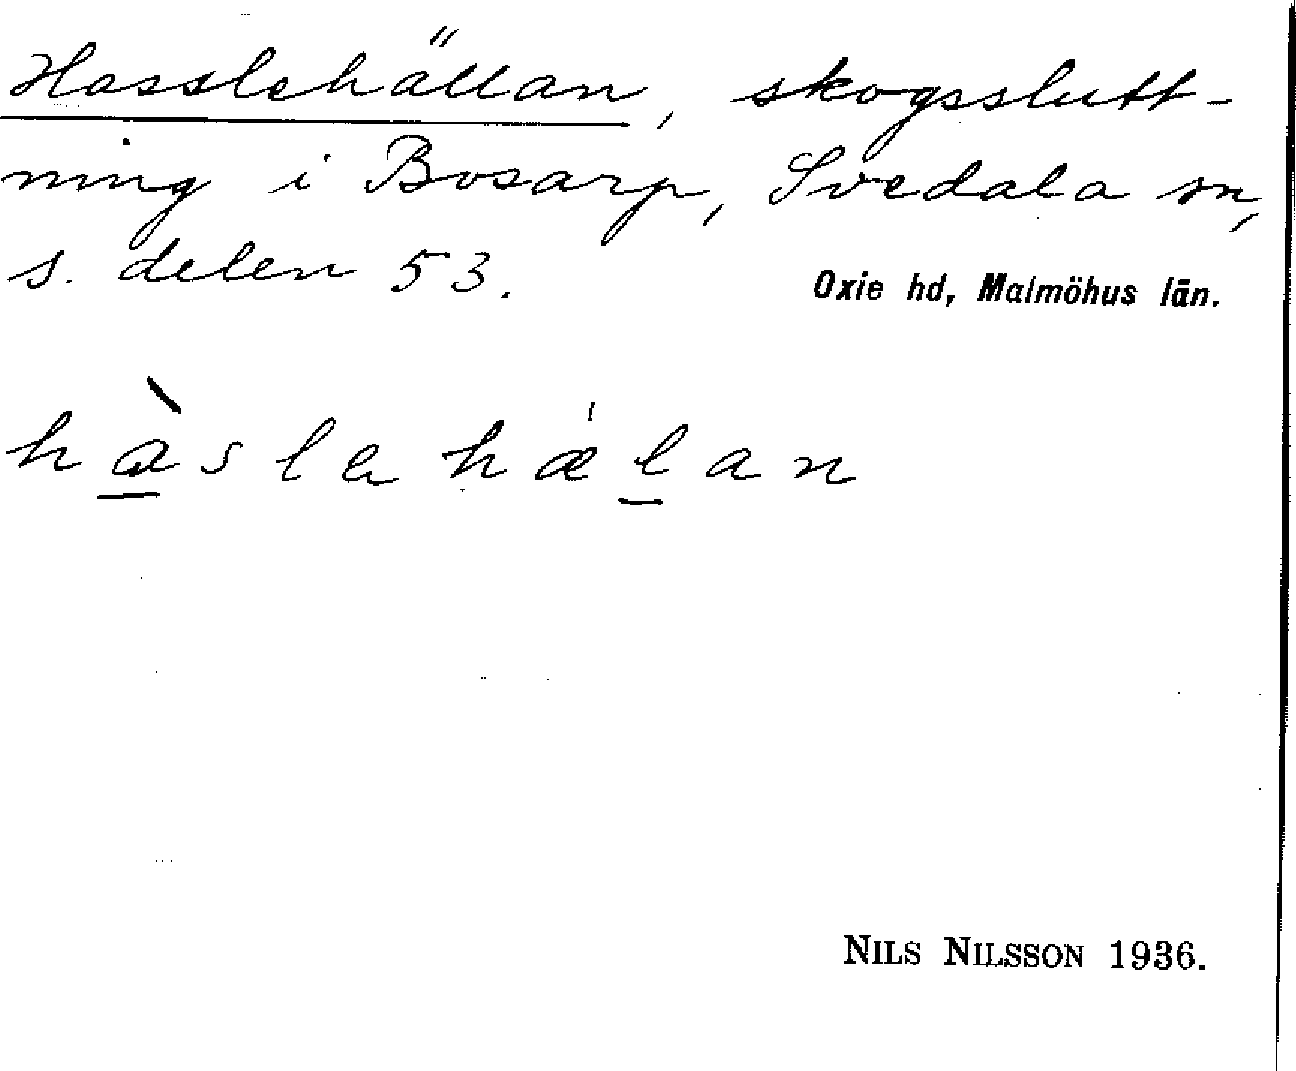 Hasslehällan, skogsslutt-
ning i Bosarp, Svedala sn,
s. delen 53.
Oxie hd, Malmöhus län.
hàslahæ̍lan
NILS NILSSON 1936.